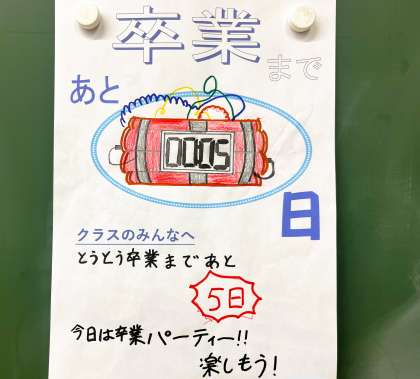 卒業まで
あと
00:05
日
クラスのみんなへ
とうとう卒業まであと
5日
今日は卒業パーティー!!
楽しもう!